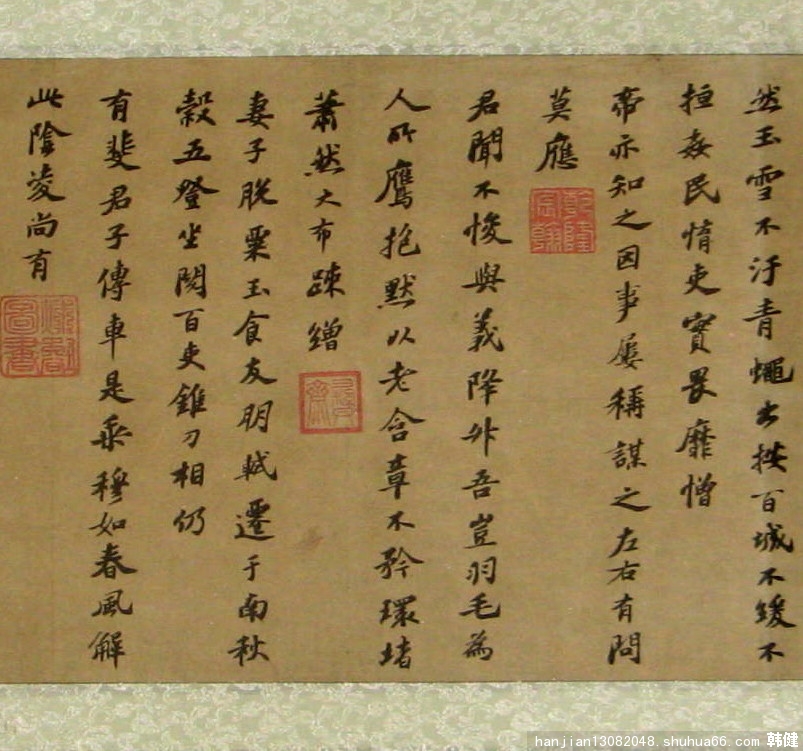 然玉雪不汙青蠅出按百城不緩不
搄姦民惰吏實畏靡憎
帝亦知之因事屢稱謀之左右有問
莫應
乾隆宸翰
君聞不悛與義降升吾豈羽毛為
人所鷹抱默以老含章不矜環堵
蕭然大布疎繒
妻子脫粟玉食友朋軾遷于南秋
穀五登坐閱百吏錐刀相仍
有斐君子傳車是乘穆如春風解
此陰凌尚有
hanjian13082048.shuhua66.com 韩健